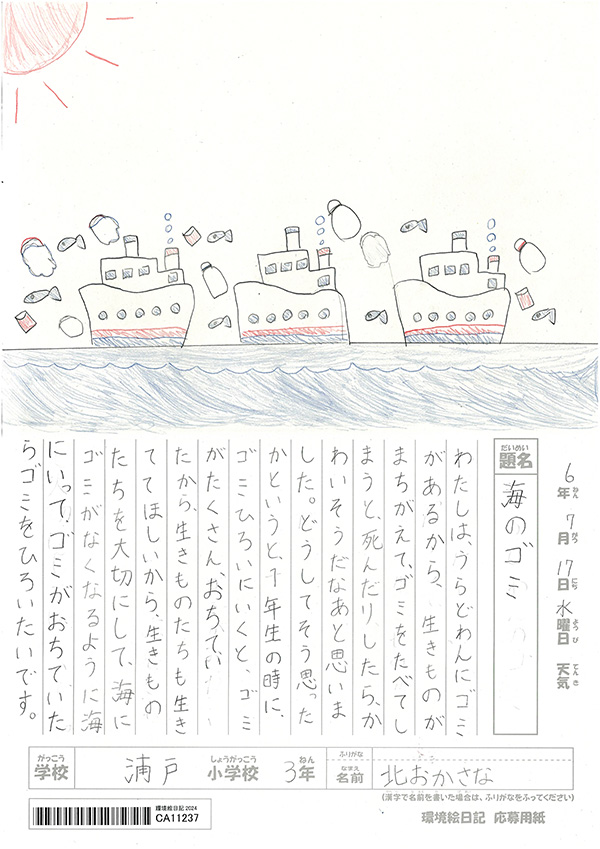 6年 7月 17日 水曜日 天気
ねん がつ にち ようび てんき
だいめい
題名 海のゴミ
わたしは、うらどわんにゴミ
があるから、生きものが
まちがえて、ゴミをたべてし
まうと、死んだりしたら、か
わいそうだなあと思いま
した。どうしてそう思った
かというと、1年生の時に、
ゴミひろいにいくと、ゴミ
がたくさん、おちてい
たから、生きものたちも生き
ててほしいから、生きもの
たちを大切にして、海に
ゴミがなくなるように海
にいって、ゴミがおちていた
らゴミをひろいたいです。
がっこう しょうがっこう ねん ふりがな
学校 浦戸 小学校 3年 名前 北おかさな
なまえ
(漢字で名前を書いた場合は、ふりがなをふってください)
環境絵日記 2024
CA11237
環境絵日記 応募用紙